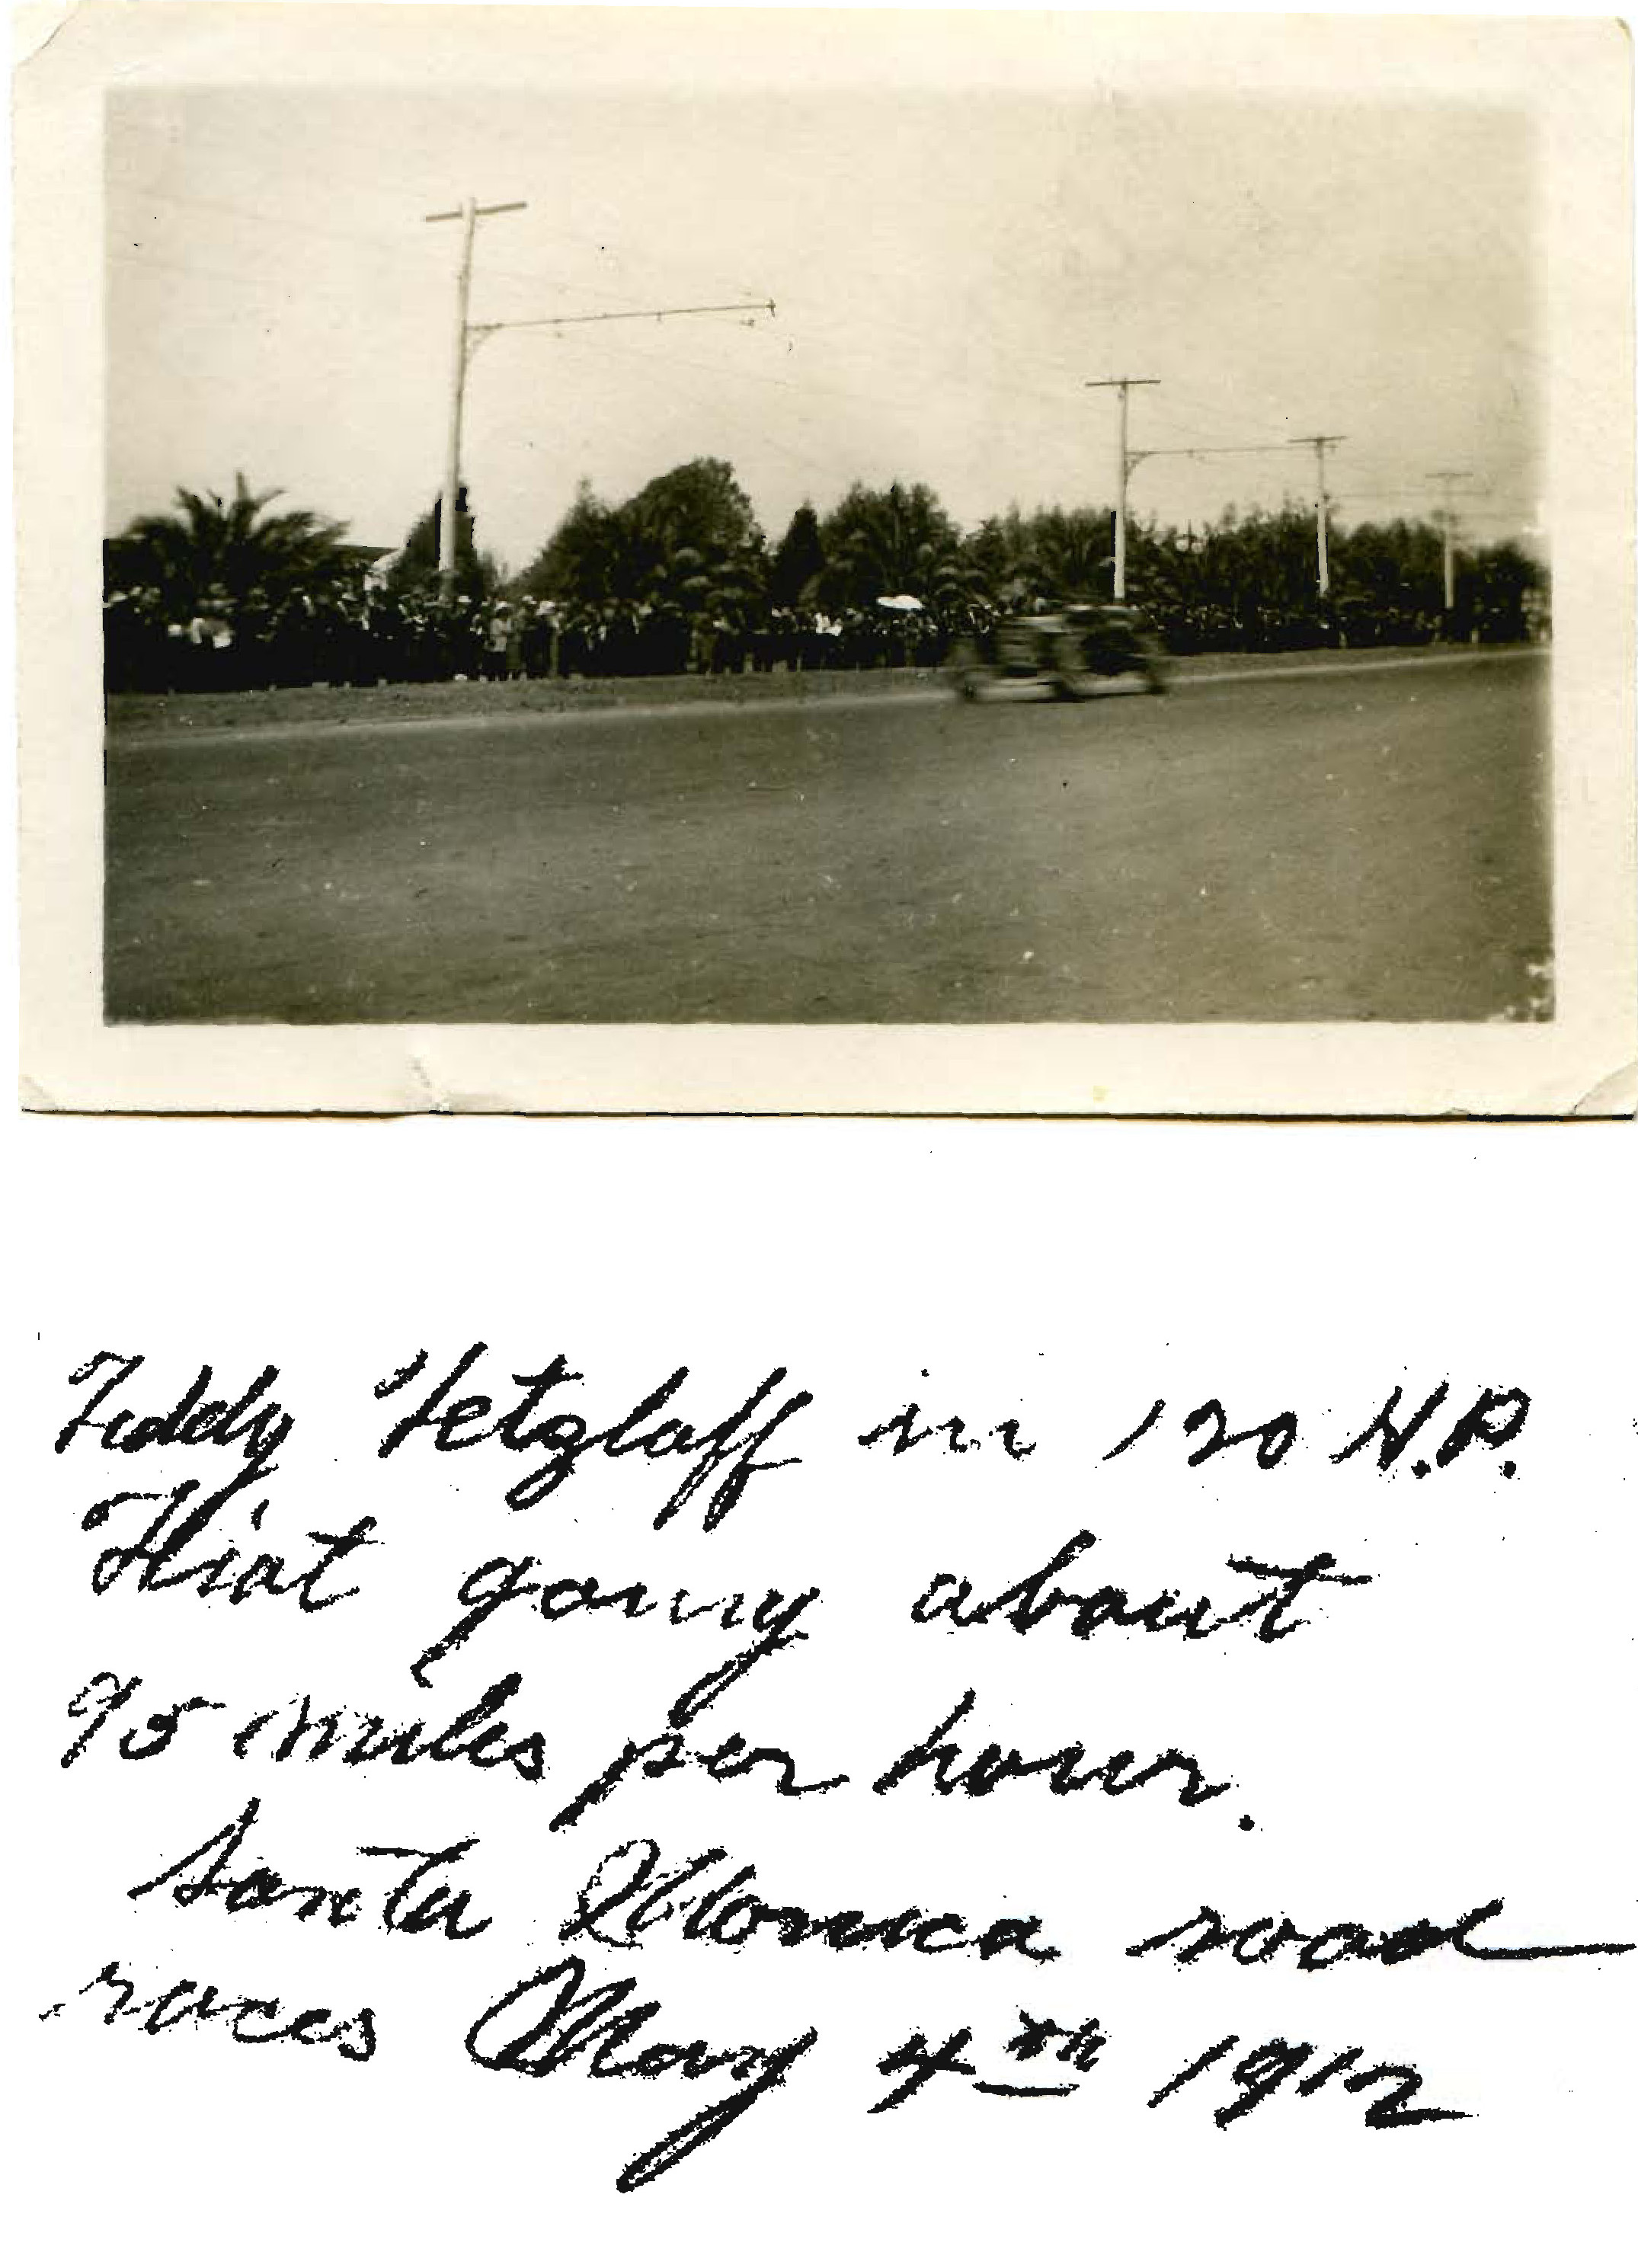 Teddy Tetzlaff in 120 H.P.
Fiat going about
95 miles per hour.
Santa Monica road
races May 4th 1912